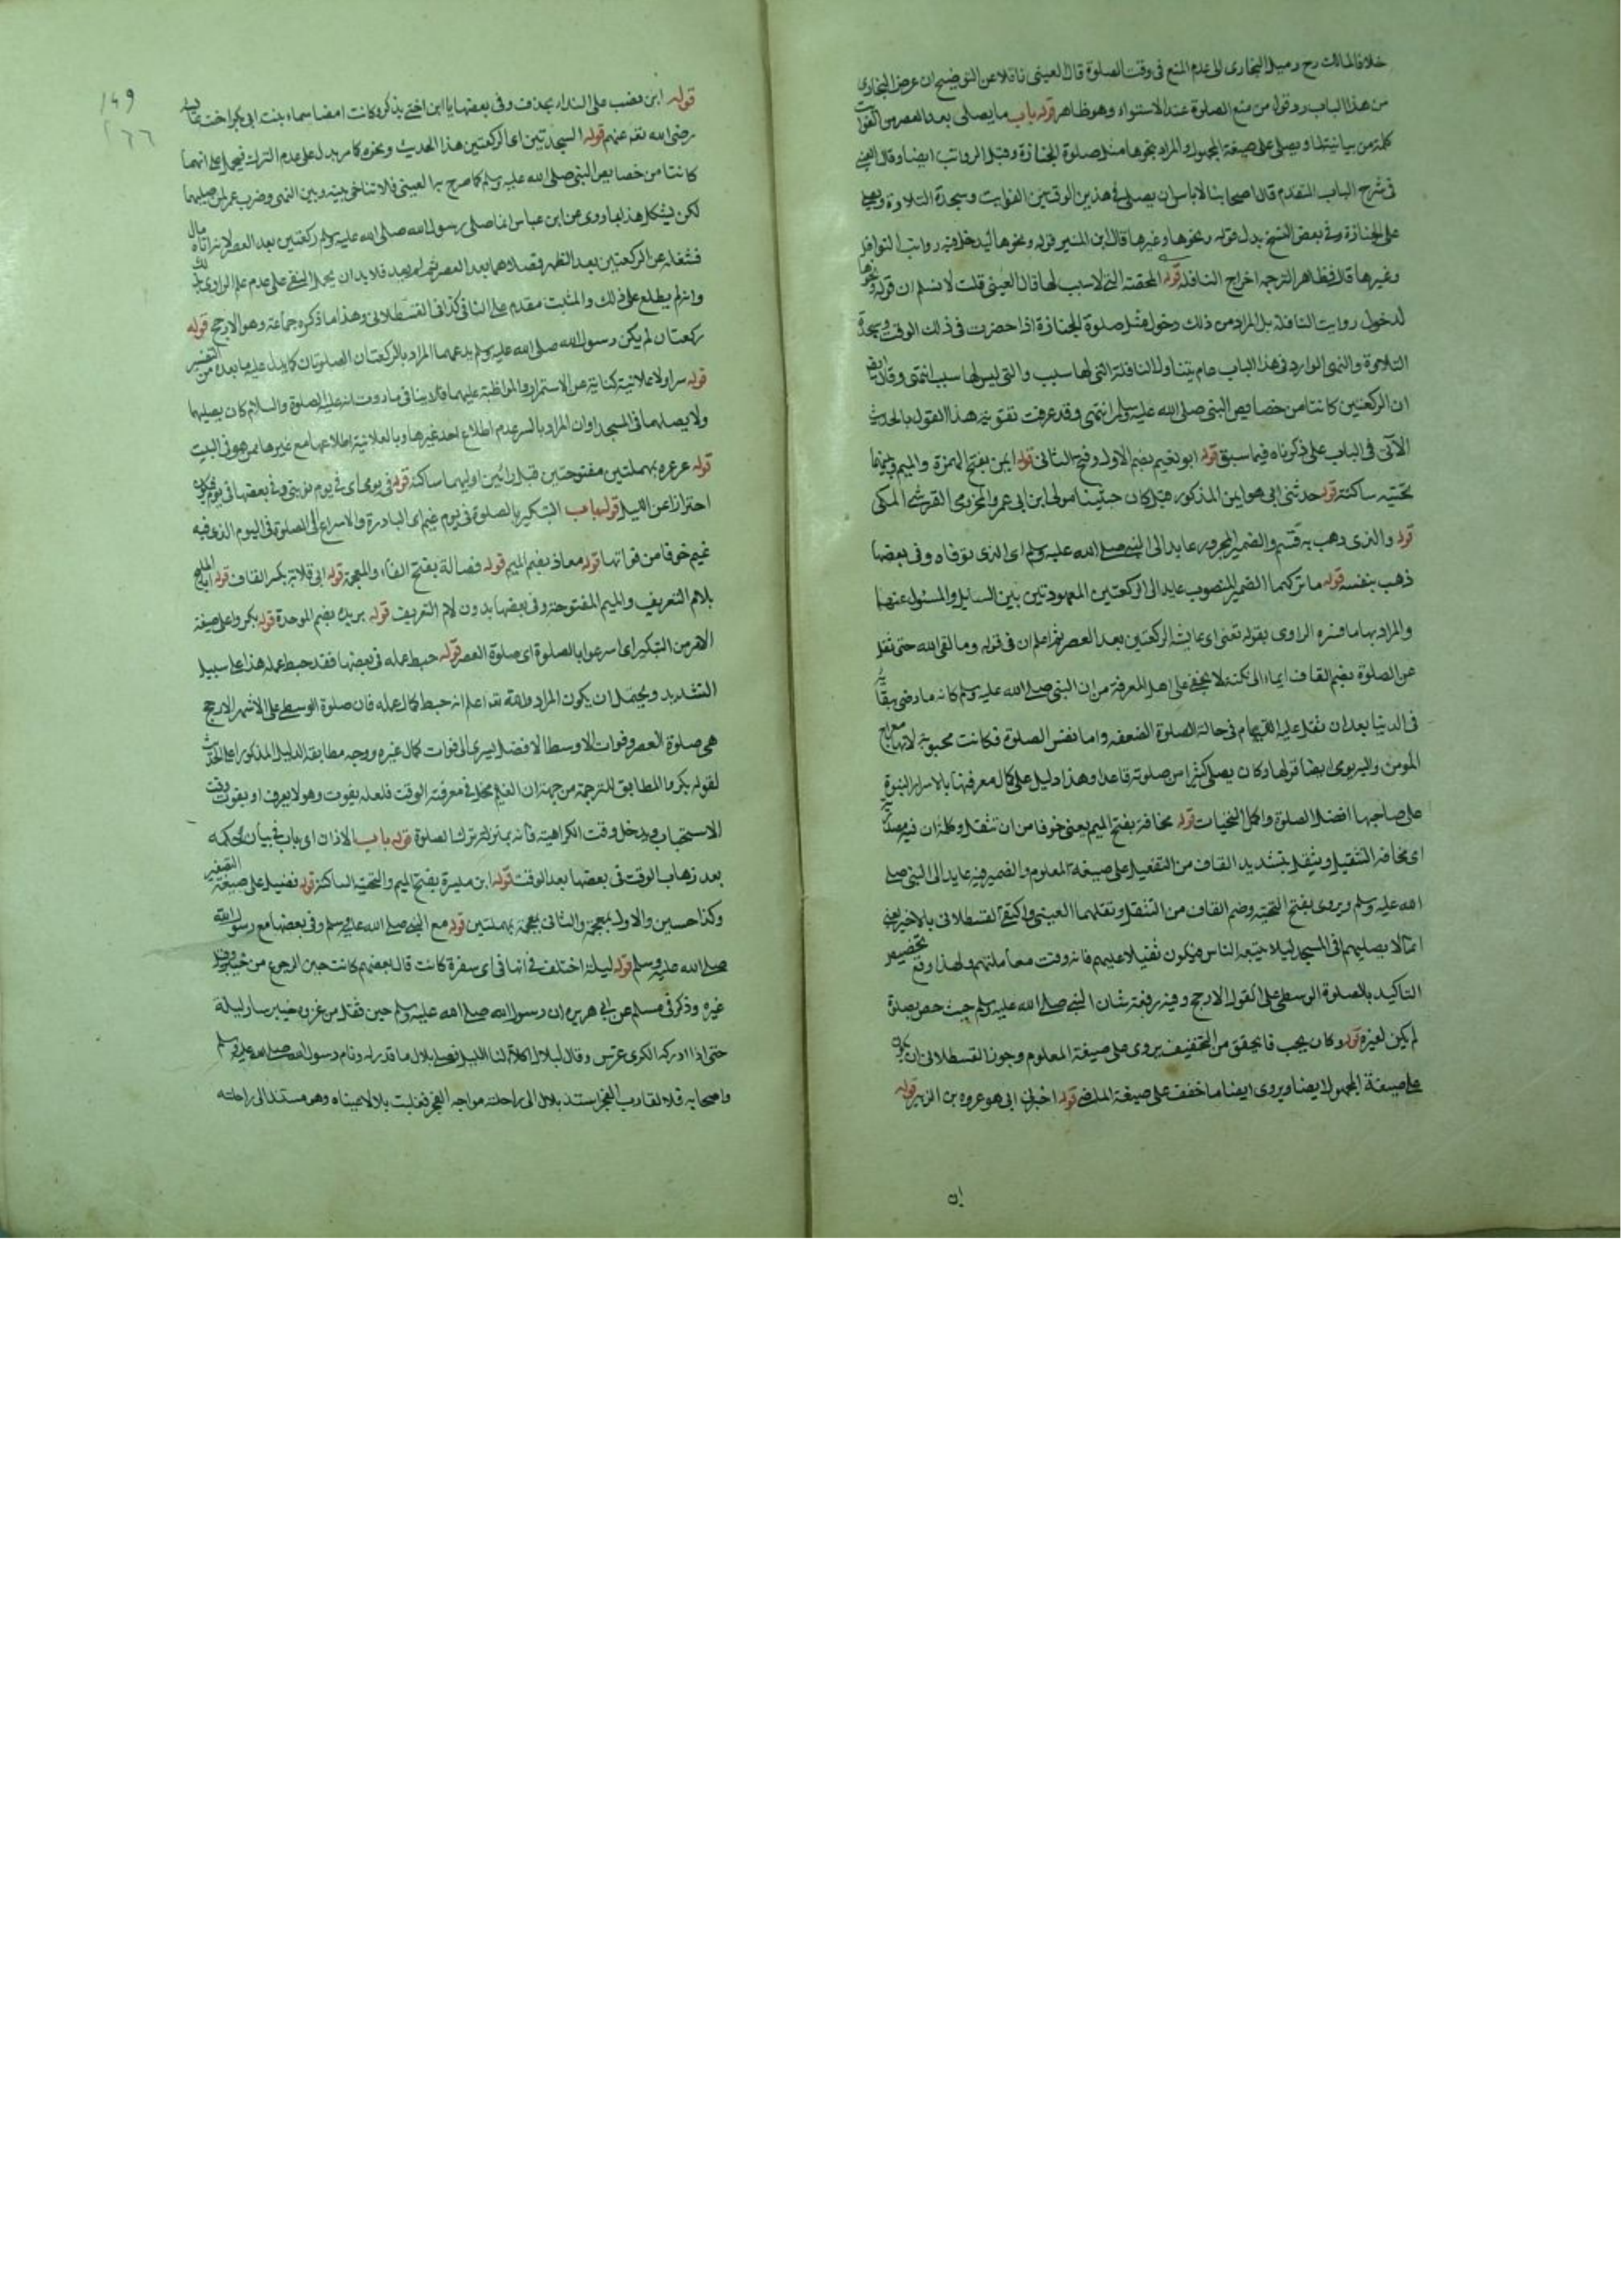 خلافا لمالك رح وميل البخارى الى عدم المنع فى وقت الصلوة قال العينى ناقلا عن التوضيح ان غرض البخارى
من هذا الباب رد قول من منع الصلوة عند الاستواء وهو ظاهر قوله باب ما يصلى بعد العصر من الفوائت
كلمة من بيانية لما ويصلى على صيغة المجهول والمراد بنحوها مثل صلوة الجنازة وقيل الرواتب ايضا وقال العينى
فى شرح الباب المتقدم قال اصحابنا لا باس ان يصلى فى هذين الوقتين الفوايت وسجدة التلاوة ويصلى
على الجنازة وفى بعض النسخ بدل قوله ونحوها وغيرها قال ابن المنير قوله ونحوها ليدخل فيه رواتب النوافل
وغيرها قال فظاهر الترجمة اخراج النافلة المحضة التى لا سبب لها قال العينى قلت لا نسلم ان قوله ونحوها
لدخول رواتب النافلة بل المراد من ذلك دخول مثل صلوة الجنازة اذا حضرت فى ذلك الوقت وسجدة
التلاوة والنهى الوارد فى هذا الباب عام يتناول النافلة التى لها سبب والتى ليس لها سبب انتهى وقال ايضا
ان الركعتين كانتا من خصايص النبى صلى الله عليه وسلم انتهى وقد عرفت تقوية هذا القول بالحديث
الآتى فى الباب على ذكرناه فيما سبق قوله ابو نعيم بضم الاول وفتح الثانى قوله ايمن بفتح الهمزة والميم وبينهما
تحتيه ساكنة قوله حدثنى ابى هو ايمن المذكور كان حبشيا مولى ابن ابى عمرو المخزومى القرشى المكى
قوله والذى ذهب به قسم والضمير المجرور عايد الى النبى صلى الله عليه وسلم اى الذى توفاه وفى بعضها
ذهب بنفسه قوله ما تركهما الضمير المنصوب عايد الى الركعتين المعهودتين بين السايل والمسئول عنهما
والمراد بها ما فسره الراوى بقوله تعنى اى عايشة الركعتين بعد العصر ثم اعلم ان فى قوله وما لقى الله حتى ثقل
عن الصلوة بضم القاف ايماء الى نكتة لا يخفى على اهل المعرفة من ان النبى صلى الله عليه وسلم كانه ما رضى ببقائه
فى الدنيا بعد ان ثقل عليه القيام فى حالة الصلوة لضعفه واما نفس الصلوة فكانت محبوبة لانها معراج
المؤمن وكان يصلى كثيرا من صلوته قاعدا وهذا دليل على كمال معرفتها بالاسرار النبوة
على صاحبها افضل الصلوة واكمل التحيات قوله مخافة بفتح الميم يعنى خوفا من ان تثقل وكلمة ان فيه مصدرية
اى مخافة التثقيل ويثقل بتشديد القاف من التفعيل على صيغة المعلوم والضمير فيه عايد الى النبى صلى
الله عليه وسلم ويروى بفتح التحتية وضم القاف من الثقل ونقلهما العينى واكتفى القسطلانى بالاخير يعنى
انما لا يصليهم فى المسجد ليلا يتبعه الناس فيكون ثقيلا عليهم فانه وقت معاملتهم ولهذا وقع تخصيص
التاكيد بالصلوة الوسطى على القول الارجح وفيه رفعة شان النبى صلى الله عليه وسلم حيث خص بصلوة
لم يكن لغيره قوله وكان يحب ما يخفف من التخفيف يروى على صيغة المعلوم وجوز القسطلانى ان يكون
على صيغة المجهول ايضا ويروى ايضا ما خفف على صيغة الماضى قوله اخبرنى ابى هو عروة بن الزبير قوله
ان
149
قوله ابن نصب على النداء بحذف وفى بعضها يا ابن اختى بذكره وكانت اسماء بنت ابى بكر اخت عايشة
رضى الله تعه عنهم قوله السجدتين اى الركعتين هذا الحديث ونحوه كما مر يدل على عدم الترك فيحمل على انهما
كانتا من خصايص النبى صلى الله عليه وسلم كما صرح به العينى فلا تنافى بينه وبين النهى وضرب عمر لمن صليهما
لكن يشكل هذا بما روى عن ابن عباس انما صلى رسول الله صلى الله عليه وسلم ركعتين بعد العصر لانه اتاه مال
فشغله عن الركعتين بعد الظهر فصلاهما بعد العصر ثم لم يعد فلا بد ان يحمل النفى على عدم علم الراوى
وانه لم يطلع على ذلك والمثبت مقدم على النافى كذا فى القسطلانى وهذا ما ذكره جماعة وهو الارجح قوله
ركعتان لم يكن رسول الله صلى الله عليه وسلم يدعهما المراد بالركعتان الصلوتان كما يدل عليه ما بعده من التفسير
قوله سرا ولا علانية كناية عن الاستمرار والمواظبة عليهما فلا ينافى ما روت انه عليه الصلوة والسلام كان يصليها
ولا يصلهما فى المسجد او ان المراد بالسر عدم اطلاع احد غيرها وبالعلانية اطلاعها مع غيرها ممن هو فى البيت
قوله عرعره بمهملتين مفتوحتين قبل رائين اوليهما ساكنة قوله فى يومى اى فى يوم نوبتى وفى بعضها فى يوم فيكون
احترازا عن الليل قوله باب التبكير بالصلوة فى يوم غيم اى المبادرة والاسراع الى الصلوة فى اليوم الذى فيه
غيم خوفا من فواتها قوله معاذ بضم الميم قوله فضالة بفتح الفاء والمعجمة قوله ابى قلابة بكسر القاف قوله ابا المليح
بلام التعريف والميم المفتوحة وفى بعضها بدون لام التعريف قوله بريدة بضم الموحدة قوله بكروا على صيغة
الامر من التبكير اى اسرعوا بالصلوة اى صلوة العصر قوله حبط عمله فى بعضها فقد حبط عمله هذا على سبيل
التشديد ويحتمل ان يكون المراد والله تعه اعلم انه حبط كمال عمله فان صلوة الوسطى على الاشهر الارجح
هى صلوة العصر وفوات الاوسط الافضل يسرى الى فوات كمال غيره ووجه مطابقة الدليل المذكور اعنى الحديث
لقوله بكروا المطابق للترجمة من جهة ان الغيم مخل فى معرفة الوقت فلعله يفوت وهو لا يعرف او يفوت وقت
الاستحباب ويدخل وقت الكراهية فانه بمنزلة ترك الصلوة قوله باب الاذان اى باب فى بيان حكمه
بعد ذهاب الوقت فى بعضها بعد الوقت قوله ابن ميسرة بفتح الميم والتحتية الساكنة قوله فضيل على صيغة التصغير
وكذا حسين والاول بمعجمة والثانى بمهملتين قوله مع النبى صلى الله عليه وسلم وفى بعضها مع رسول الله
صلى الله عليه وسلم قوله ليلة اختلف فى انها فى اى سفرة كانت قال بعضهم كانت حين الرجوع من خيبر وقيل
غيره وذكر فى مسلم عن ابى هريره ان رسول الله صلى الله عليه وسلم حين قفل من غزوة خيبر سار ليلة
حتى اذا ادركه الكرى عرس وقال لبلال اكلأ لنا الليل فصلى بلال ما قدر له ونام رسول الله صلى الله عليه وسلم
واصحابه فلما تقارب الفجر استند بلال الى راحلته مواجه الفجر فغلبت بلالا عيناه وهو مستند الى راحلته